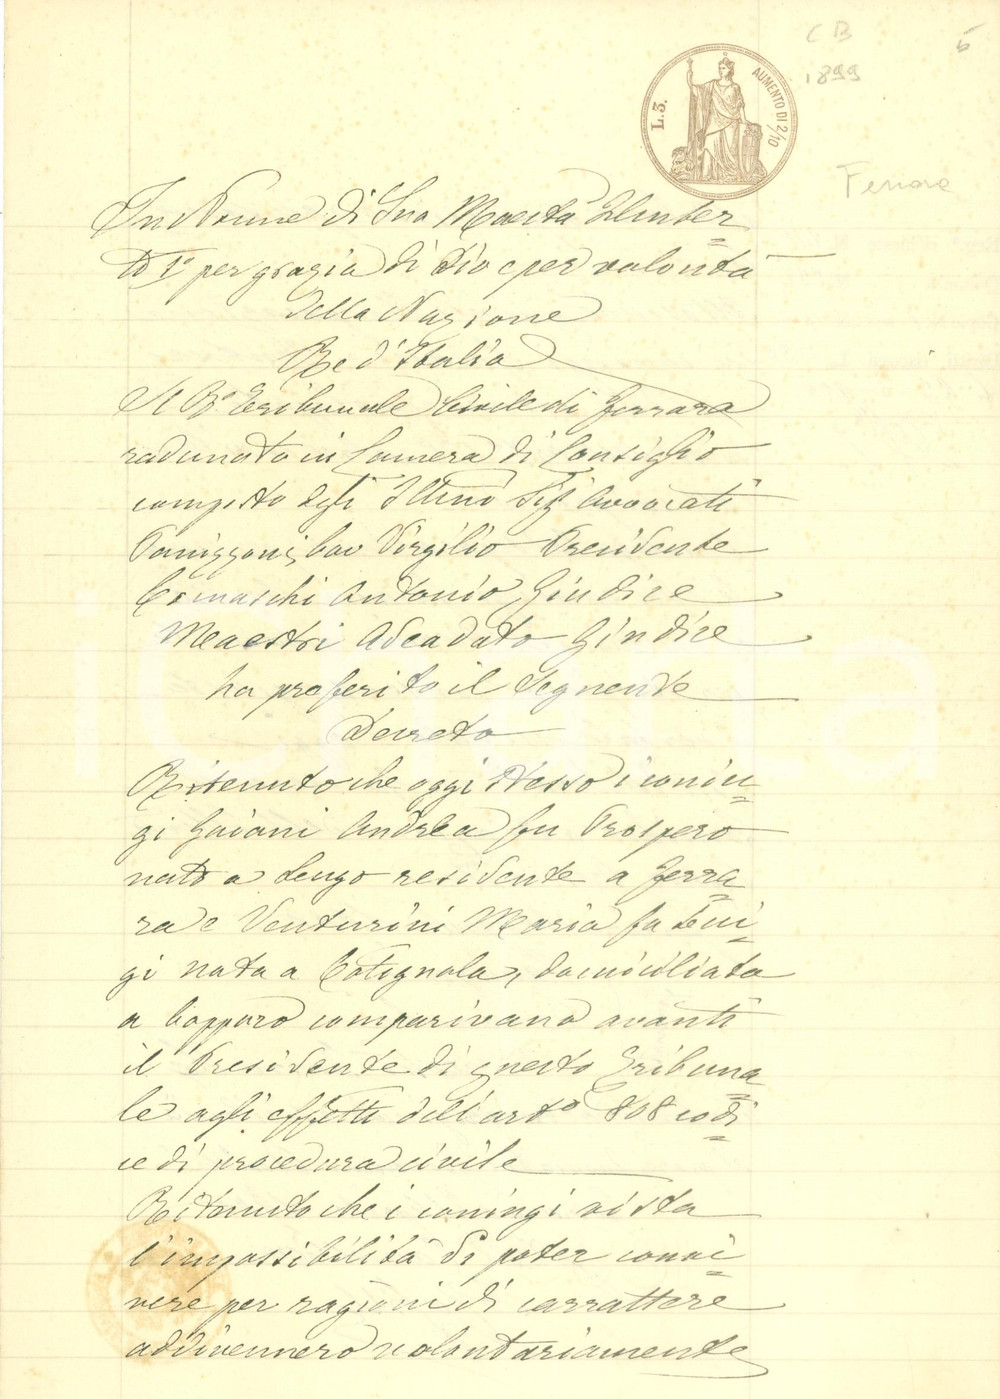 CB
6
1899
L. 3.
AUMENTO DI 2/10
Ferrara
In Nome di Sua Maestà Umber
to 1° per grazia di Dio e per volontà
della Nazione
Re d'Italia
Il R.° Tribunale Civile di Ferrara
radunato in Camera di Consiglio
composto dagli Ill.mi Sig.i Avvocati
Cav Virgilio Presidente
Comaschi Antonio Giudice
Maestri Adeodato Giudice
ha proferito il seguente
Decreto
Ritenuto che oggi stesso i coniu
gi Gaiani Andrea fu Prospero
nato a residente a Ferra
ra e Venturini Maria fu Lui
gi nata a Cotignola, domiciliata
a Copparo comparivano avanti
il Presidente di questo Tribuna
le agli effetti dell'arto 808 codi
ce di procedura civile
Ritenuto che i coniugi vista
l'impossibilità di poter convi
vere per ragioni di carrattere
addivennero volontariamente